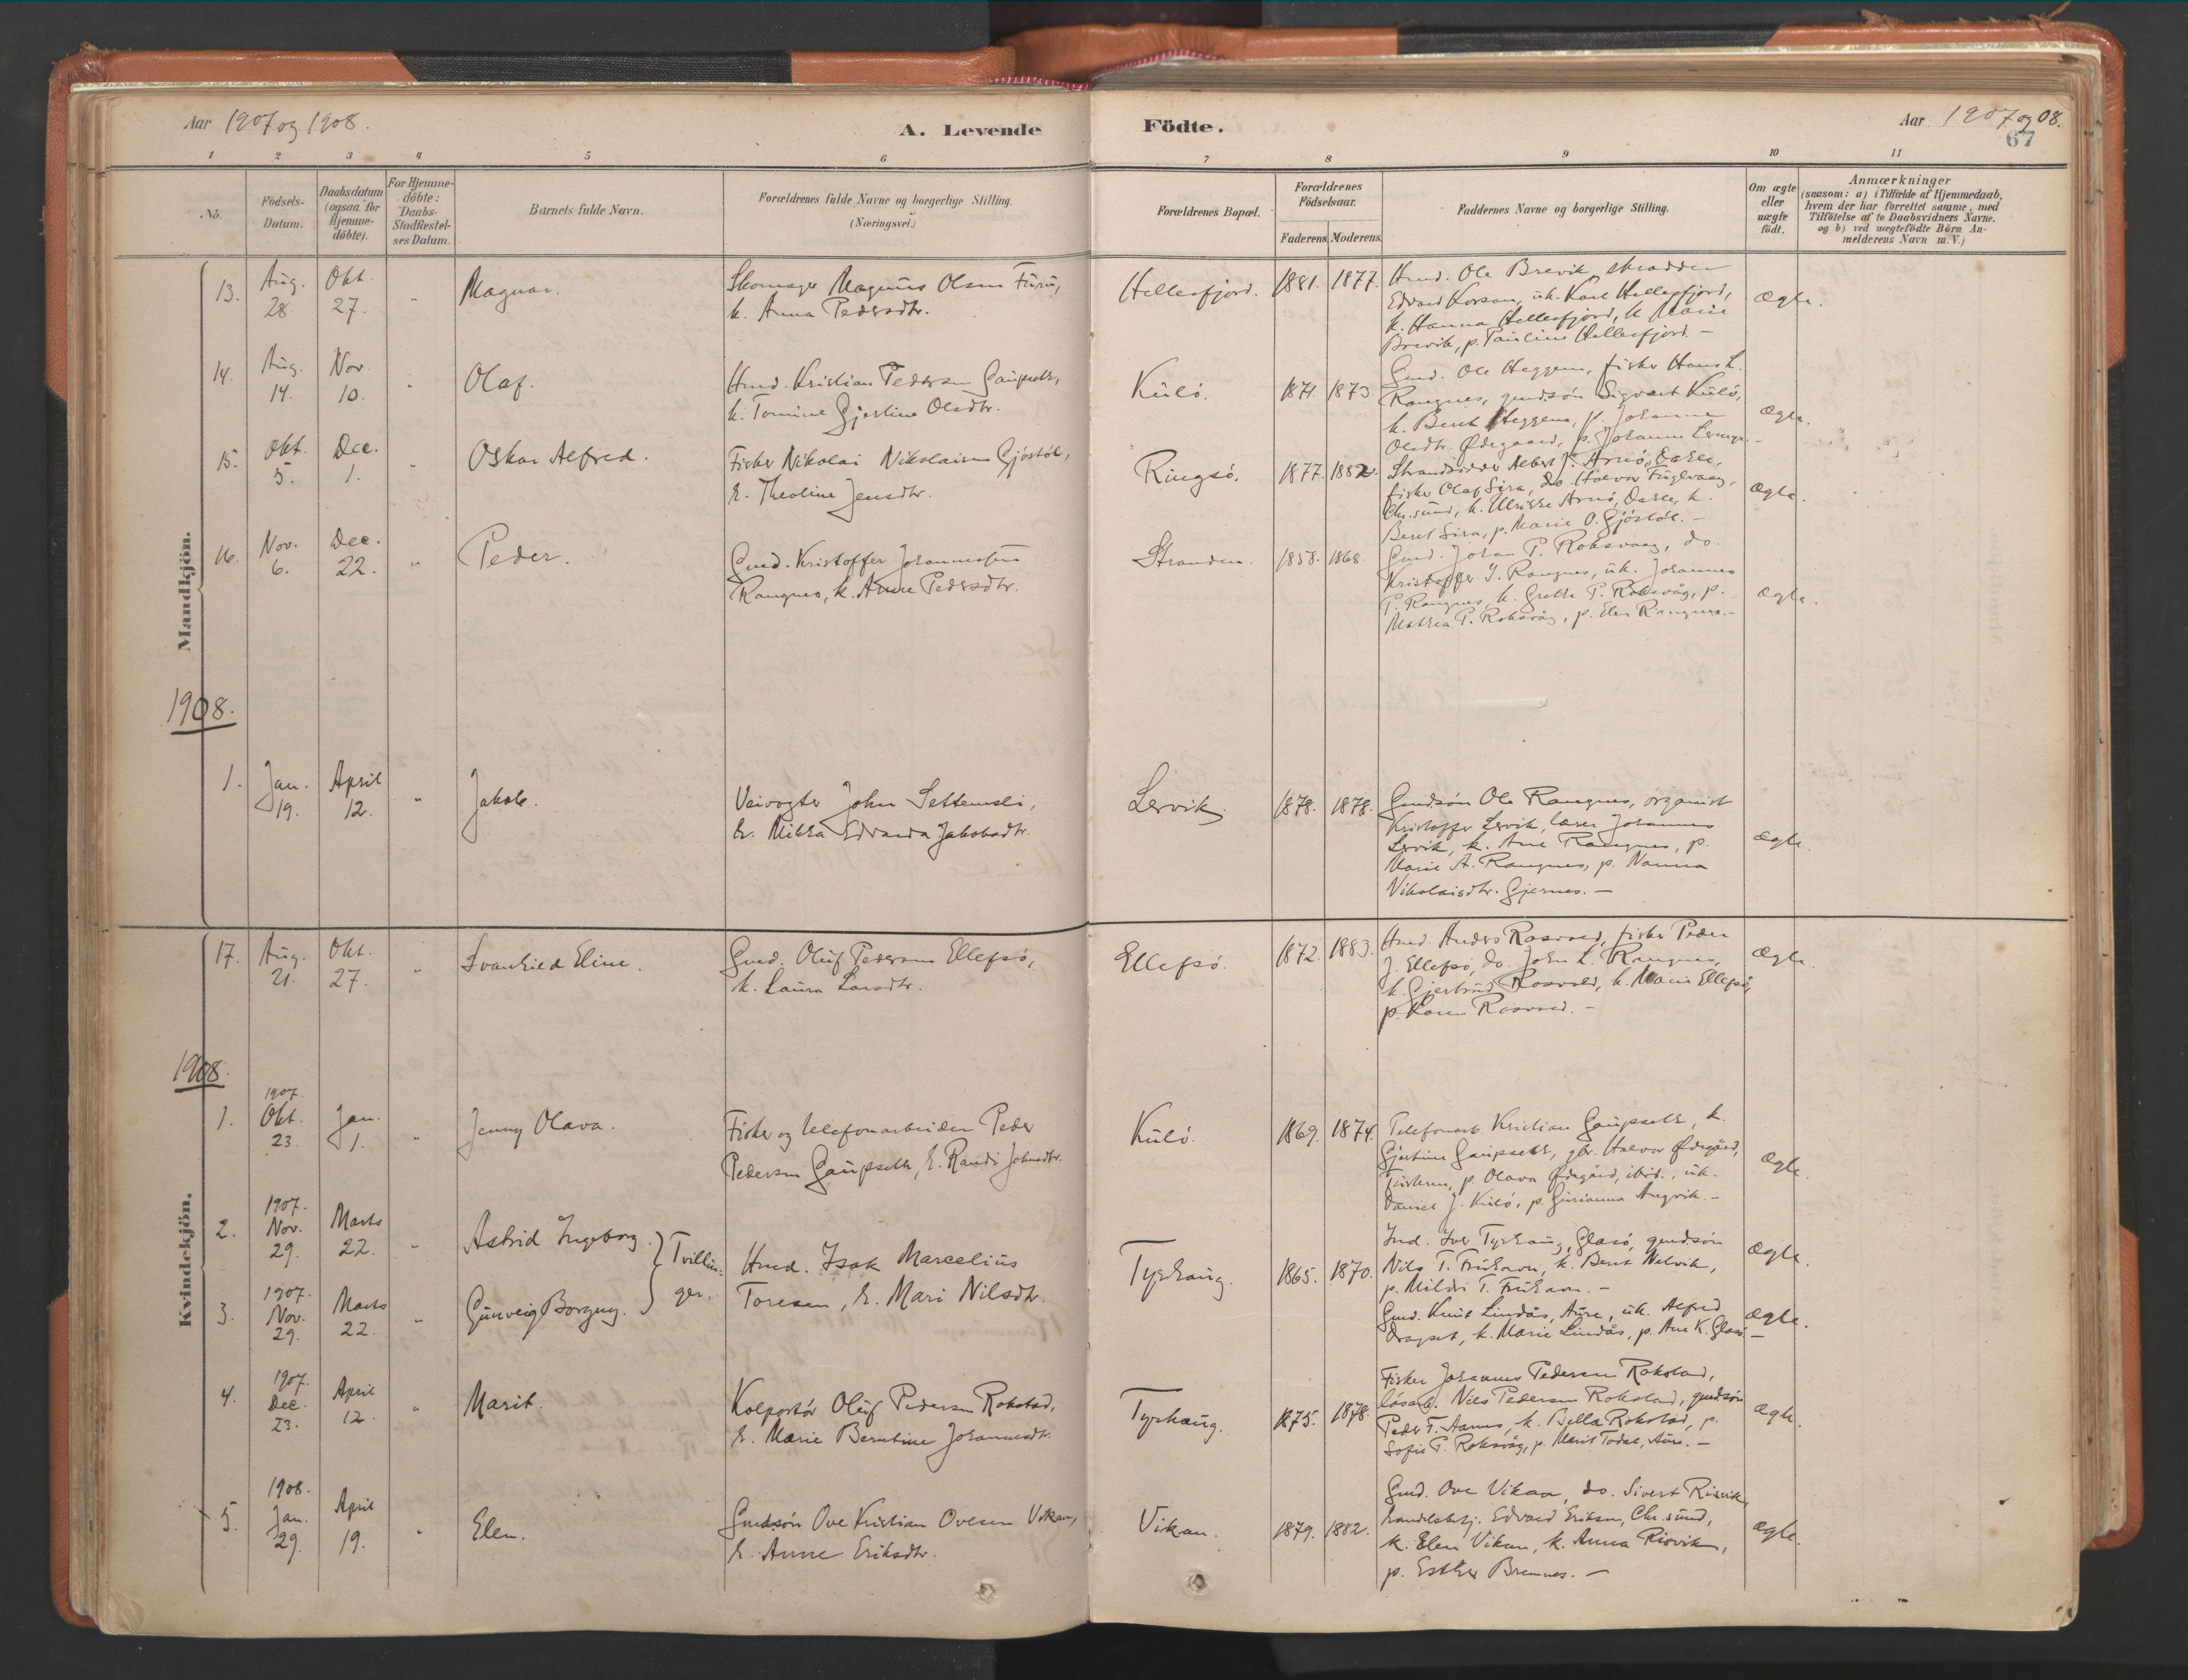 Aar 1907 og 1908.
A. Levende Födte.
Aar 1907 og 08.
67
1 2 3 4 5 6 7 8 9 10 11
No.
Födsels-Datum.
Daabsdatum (ogsaa for Hjemme-döbte).
For Hjemme-döbte: Daabs-Stadfæstelses Datum.
Barnets fulde Navn.
Forældrenes fulde Navne og borgerlige Stilling. (Næringsvei.)
Forældrenes Bopæl.
Forældrenes Födselsaar.
Faderens. Moderens.
Faddernes Navne og borgerlige Stilling.
Om ægte eller uægte födt.
Anmærkninger
(saasom: a) i Tilfælde af Hjemmedaab,
hvem der har forrettet samme, med
Tilföielse af to Daabsvidners Navne.
og b) ved uægtefödte Börn An-
melderens Navn m.V.)
Mandkjön.
13. Aug. 28. Okt. 27. " Magnar.
Skomager Magnus Olsen Furu,
k. Anna Pedersdtr.
Hellesfjord. 1881. 1877.
Hmd. Ole Brevik, skrædder
Edvard Korsan, uk. Karl Hellesfjord,
k. Hanna Hellesfjord, k. Marie
Brevik, p. Pauline Hellesfjord. —
Ægte.
14. Aug. 14. Nov. 10. " Olaf.
Hmd. Kristian Pedersen Gaupseth,
k. Tomine Gjertine Olsdtr.
Kulö. 1871. 1873.
Gmd. Ole Heggem, fisker Hans L.
Rangnes, gmdsön Sigvart Kulö,
k. Beret Heggem, p. Johanna
Olsdtr. Ødegaard, p. Johanna
Ægte.
15. Okt. 5. Dec. 1. " Oskar Alfred.
Fisker Nikolai Nikolaisen Gjöstöl,
k. Theoline Jensdtr.
Ringsö. 1877. 1882.
Strandsidder Albert J. Arnö,
fisker Olaf Sira, do. Halvor Fuglvaag,
Chr.sund, k. Ulrikke Arnö, k.
Beret Sira, p. Marie O. Gjöstöl. —
Ægte.
16. Nov. 6. Dec. 22. " Peder.
Gmd. Kristoffer Johannessen
Rangnes, k. Anne Pedersdtr.
Stranden. 1858. 1868.
Gmd. Johan P. Roksvaag, do.
Kristoffer J. Rangnes, uk. Johannes
P. Rangnes, k. Grethe P. Roksvåg, p.
Mathea P. Roksvåg, p. Elen Rangnes. —
Ægte.
1908.
1. Jan. 19. April 12. " Jakob.
Veivogter John Settemsli,
k. Milla Edvarda Jakobsdtr.
Lervik. 1878. 1878.
Gmdsön Ole Rangnes, organist
Kristoffer Lervik, lærer Johannes
Lervik, k. Ane Rangnes, p.
Marie A. Rangnes, p. Nanna
Nikolaisdtr. Gjernes. —
Ægte.
Kvindekjön.
17. Aug. 21. Okt. 27. " Svanhild Eline.
Gmd. Oluf Pedersen Ellefsö,
k. Laura Larsdtr.
Ellefsö. 1872. 1883.
Hmd. Anders Rosvold, fisker Peder
J. Ellefsö, do. John L. Rangnes,
k. Gjertrud Rosvold, k. Marie Ellefsö,
p. Karen Rosvold. —
Ægte.
1908.
1. 1907. Okt. 23. Jan. 1. " Jenny Olava.
Fisker og telefonarbeider Peder
Pedersen Gaupseth, k. Randi Johnsdtr.
Kulö. 1869. 1874.
Telefonarb. Kristian Gaupseth, k.
Gjertine Gaupseth, gbr. Halvor Ødegård,
p. Olava Ødegård, ibid., uk.
Daniel J. Kulö, p. Angvik. —
Ægte.
2. 1907. Nov. 29. Marts 22. " Astrid Ingeborg.
3. 1907. Nov. 29. Marts 22. " Gunveig Borgny.
} Tvillinger.
Hmd. Isak Marcelius
Toresen, k. Mari Nilsdtr.
Tyrhaug. 1865. 1870.
Ind. Iver Tyrhaug, Glasö, gmdsön
Nils T. k. Berit Nelvik,
p. Mildri T. —
Ægte.
Gmd. Knut Lindås, Aure, uk. Alfred
Dragset, k. Marie Lindås, p. Ane K. Glasö. —
Ægte.
4. 1907. Dec. 23. April 12. " Marit.
Kolportör Oluf Pedersen Rokstad,
k. Marie Berntine Johannesdtr.
Tyrhaug. 1875. 1878.
Fisker Johannes Pedersen Rokstad,
lösarb. Nils Pedersen Rokstad, gmdsön
Peder T. Aames, k. Bella Rokstad, p.
Sofie P. Roksvåg, p. Marit Todal, Aure. —
Ægte.
5. 1908. Jan. 29. April 19. " Elen.
Gmdsön Ove Kristian Ovesen Vikan,
k. Anne Eriksdtr.
Vikan. 1879. 1882.
Gmd. Ove Vikan, do. Sivert Risvik,
handelsbetj. Edvard Eriksen, Chr.sund,
k. Elen Vikan, k. Anna Risvik,
p. Esther Bremnes. —
Ægte.